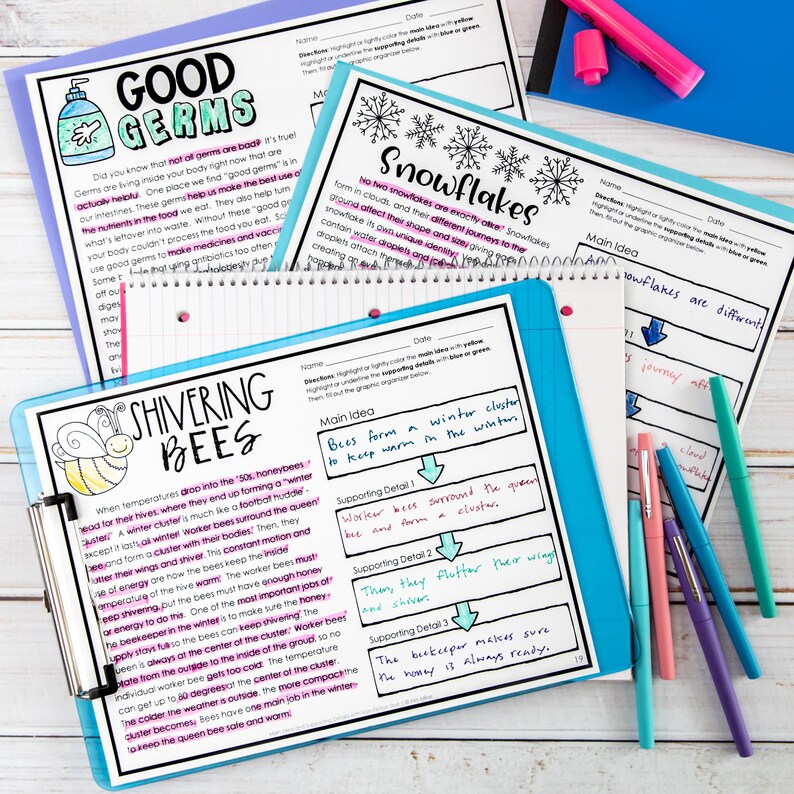 GOOD
GERMS
Name Date
Directions: Highlight or lightly color the main idea with yellow.
Highlight or underline the supporting details with blue or green.
Then, fill out the graphic organizer below.
Did you know that not all germs are bad? It's true!
Germs are living inside your body right now that are
actually helpful. One place we find "good germs" is in
our intestines. These germs help us make the best use of
the nutrients in the food we eat. They also help turn
what's leftover into waste. Without these "good
your body couldn't process the food you eat.
use good germs to make medicines and
that using antibiotics too often
Snowflakes
Name Date
Directions: Highlight or lightly color the main idea with yellow.
Highlight or underline the supporting details with blue or green.
Then, fill out the graphic organizer below.
No two snowflakes are exactly alike. Snowflakes
form in clouds, and their different journeys to the
ground affect their shape and size, giving each
snowflake its own unique identity.
contain water droplets and
droplets attach
creating an
Main Idea
snowflakes are different.
journey
a cloud
snowflake
SHIVERING
BEES
Name Date
Directions: Highlight or lightly color the main idea with yellow.
Highlight or underline the supporting details with blue or green.
Then, fill out the graphic organizer below.
When temperatures drop into the '50s, honeybees
head for their hives, where they end up forming a "winter
cluster." A winter cluster is much like a football huddle -
except it lasts all winter! Worker bees surround the queen
bee and form a cluster with their bodies. Then, they
flutter their wings and shiver. This constant motion and
use of energy are how the bees keep the inside
temperature of the hive warm. The worker bees must
keep shivering, but the bees must have enough honey
for energy to do this. One of the most important jobs of
the beekeeper in the winter is to make sure the honey
supply stays full so the bees can keep shivering. The
queen is always at the center of the cluster. Worker bees
rotate from the outside to the inside of the group, so no
individual worker bee gets too cold. The temperature
can get up to 80 degrees at the center of the cluster.
The colder the weather is outside, the more compact the
cluster becomes. Bees have one main job in the winter:
to keep the queen bee safe and warm.
Main Idea
Bees form a winter cluster
to keep warm in the winter.
Supporting Detail 1
Worker bees surround the queen
bee and form a cluster.
Supporting Detail 2
Then, they flutter their wings
and shiver.
Supporting Detail 3
The beekeeper makes sure
the honey is always ready.
19